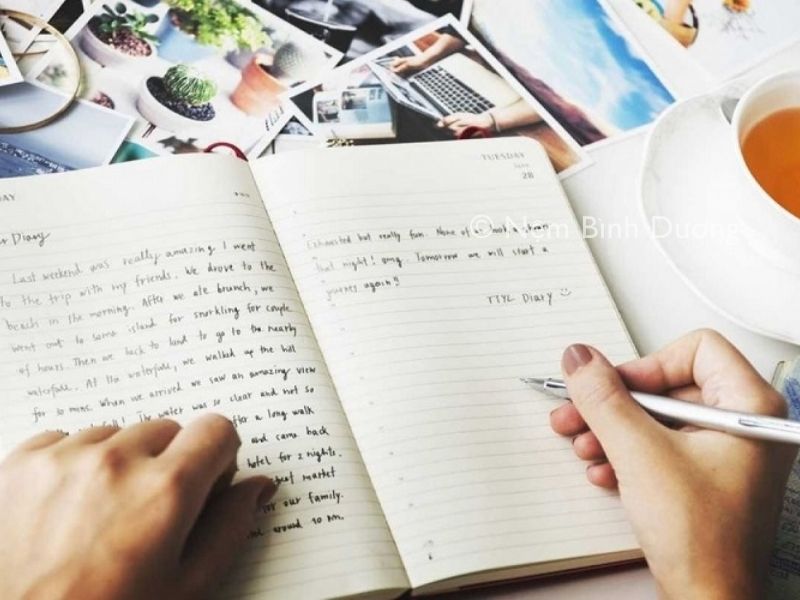 DAY
Diary
Last weekend was really amazing. I went
to the trip with my friends. We drove to the
beach in the morning. After we ate brunch, we
went out to some island for snorkling for couple
of hours. Then we back to land to go to the nearby
waterfall. At the waterfall, we walked up the hill
for 30 mins. When we arrived we saw an amazing view
The water was so clear and not so
after a long walk
and came back
hotel for 2 nights.
market
for our family.
around 10 pm.
TUESDAY
June
28
Exhausted but really fun. None of
that night! omg. Tomorrow we will start a
journey again!!
TTYL Diary
© Nem Bình Dương